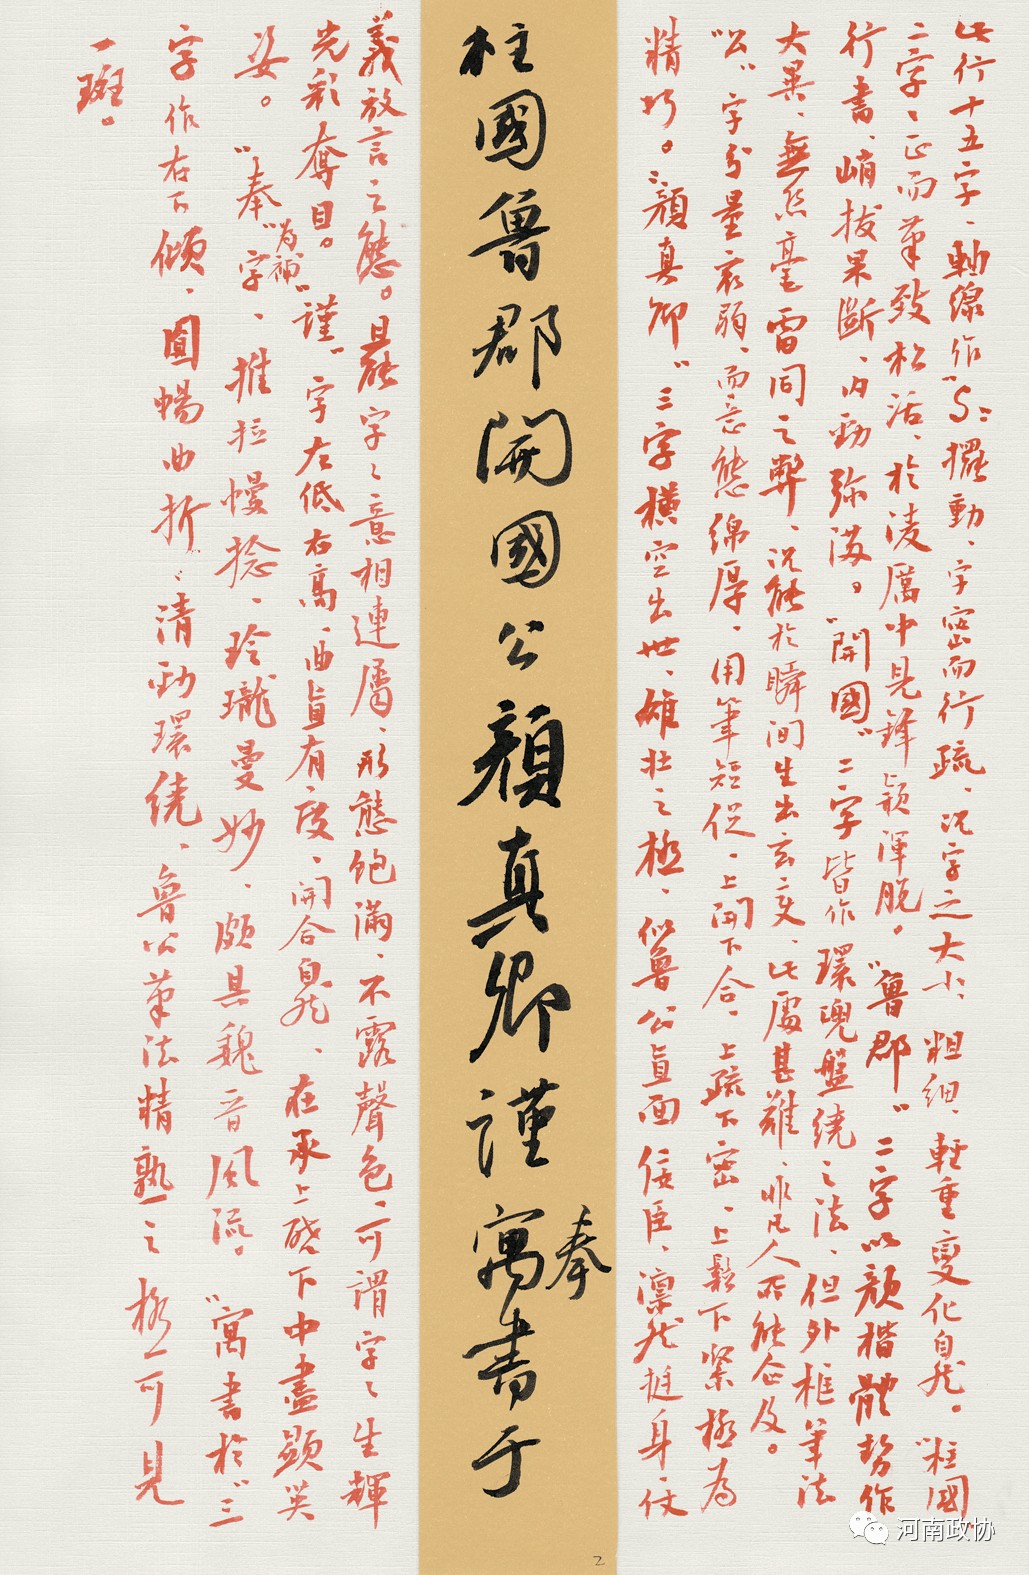 此行十五字、軸線作"S"擺動、字密而行疏、況字之大小、粗細、輕重變化自然。"柱國"
二字、正而筆致松活、於淩厲中見鋒穎渾脫。"魯郡"二字以顏楷體勢作
行書、峭拔果斷、内勁弥滿。"開國"二字皆作環兜盤繞之法、但外框筆法
大異、無絲毫雷同之弊、況能於瞬间生出玄变、此處甚難、非凡人所能企及。
"公"字分量衰弱、而意態綿厚、用筆短促、上開下合、上疏下密、上鬆下緊極為
精巧。"顏真卿"三字横空出世、雄壮之極、似魯公直面佞臣、凛然挺身仗
柱國魯郡開國公顏真卿謹寓書于
奉
義放言之態。最後字之意相連屬、形態飽滿、不露聲色、可謂字之生輝
光彩奪目。"謹"字左低右高、曲直有度、開合自然、在承上啓下中盡顯英
姿。"奉"字、推拉慢捻、玲瓏曼妙、頗具魏晋风流。"寓書於"三
為補
字作右下傾、圓暢曲折、清勁環繞、魯公筆法精熟之極可見
一斑。
2
河南政协